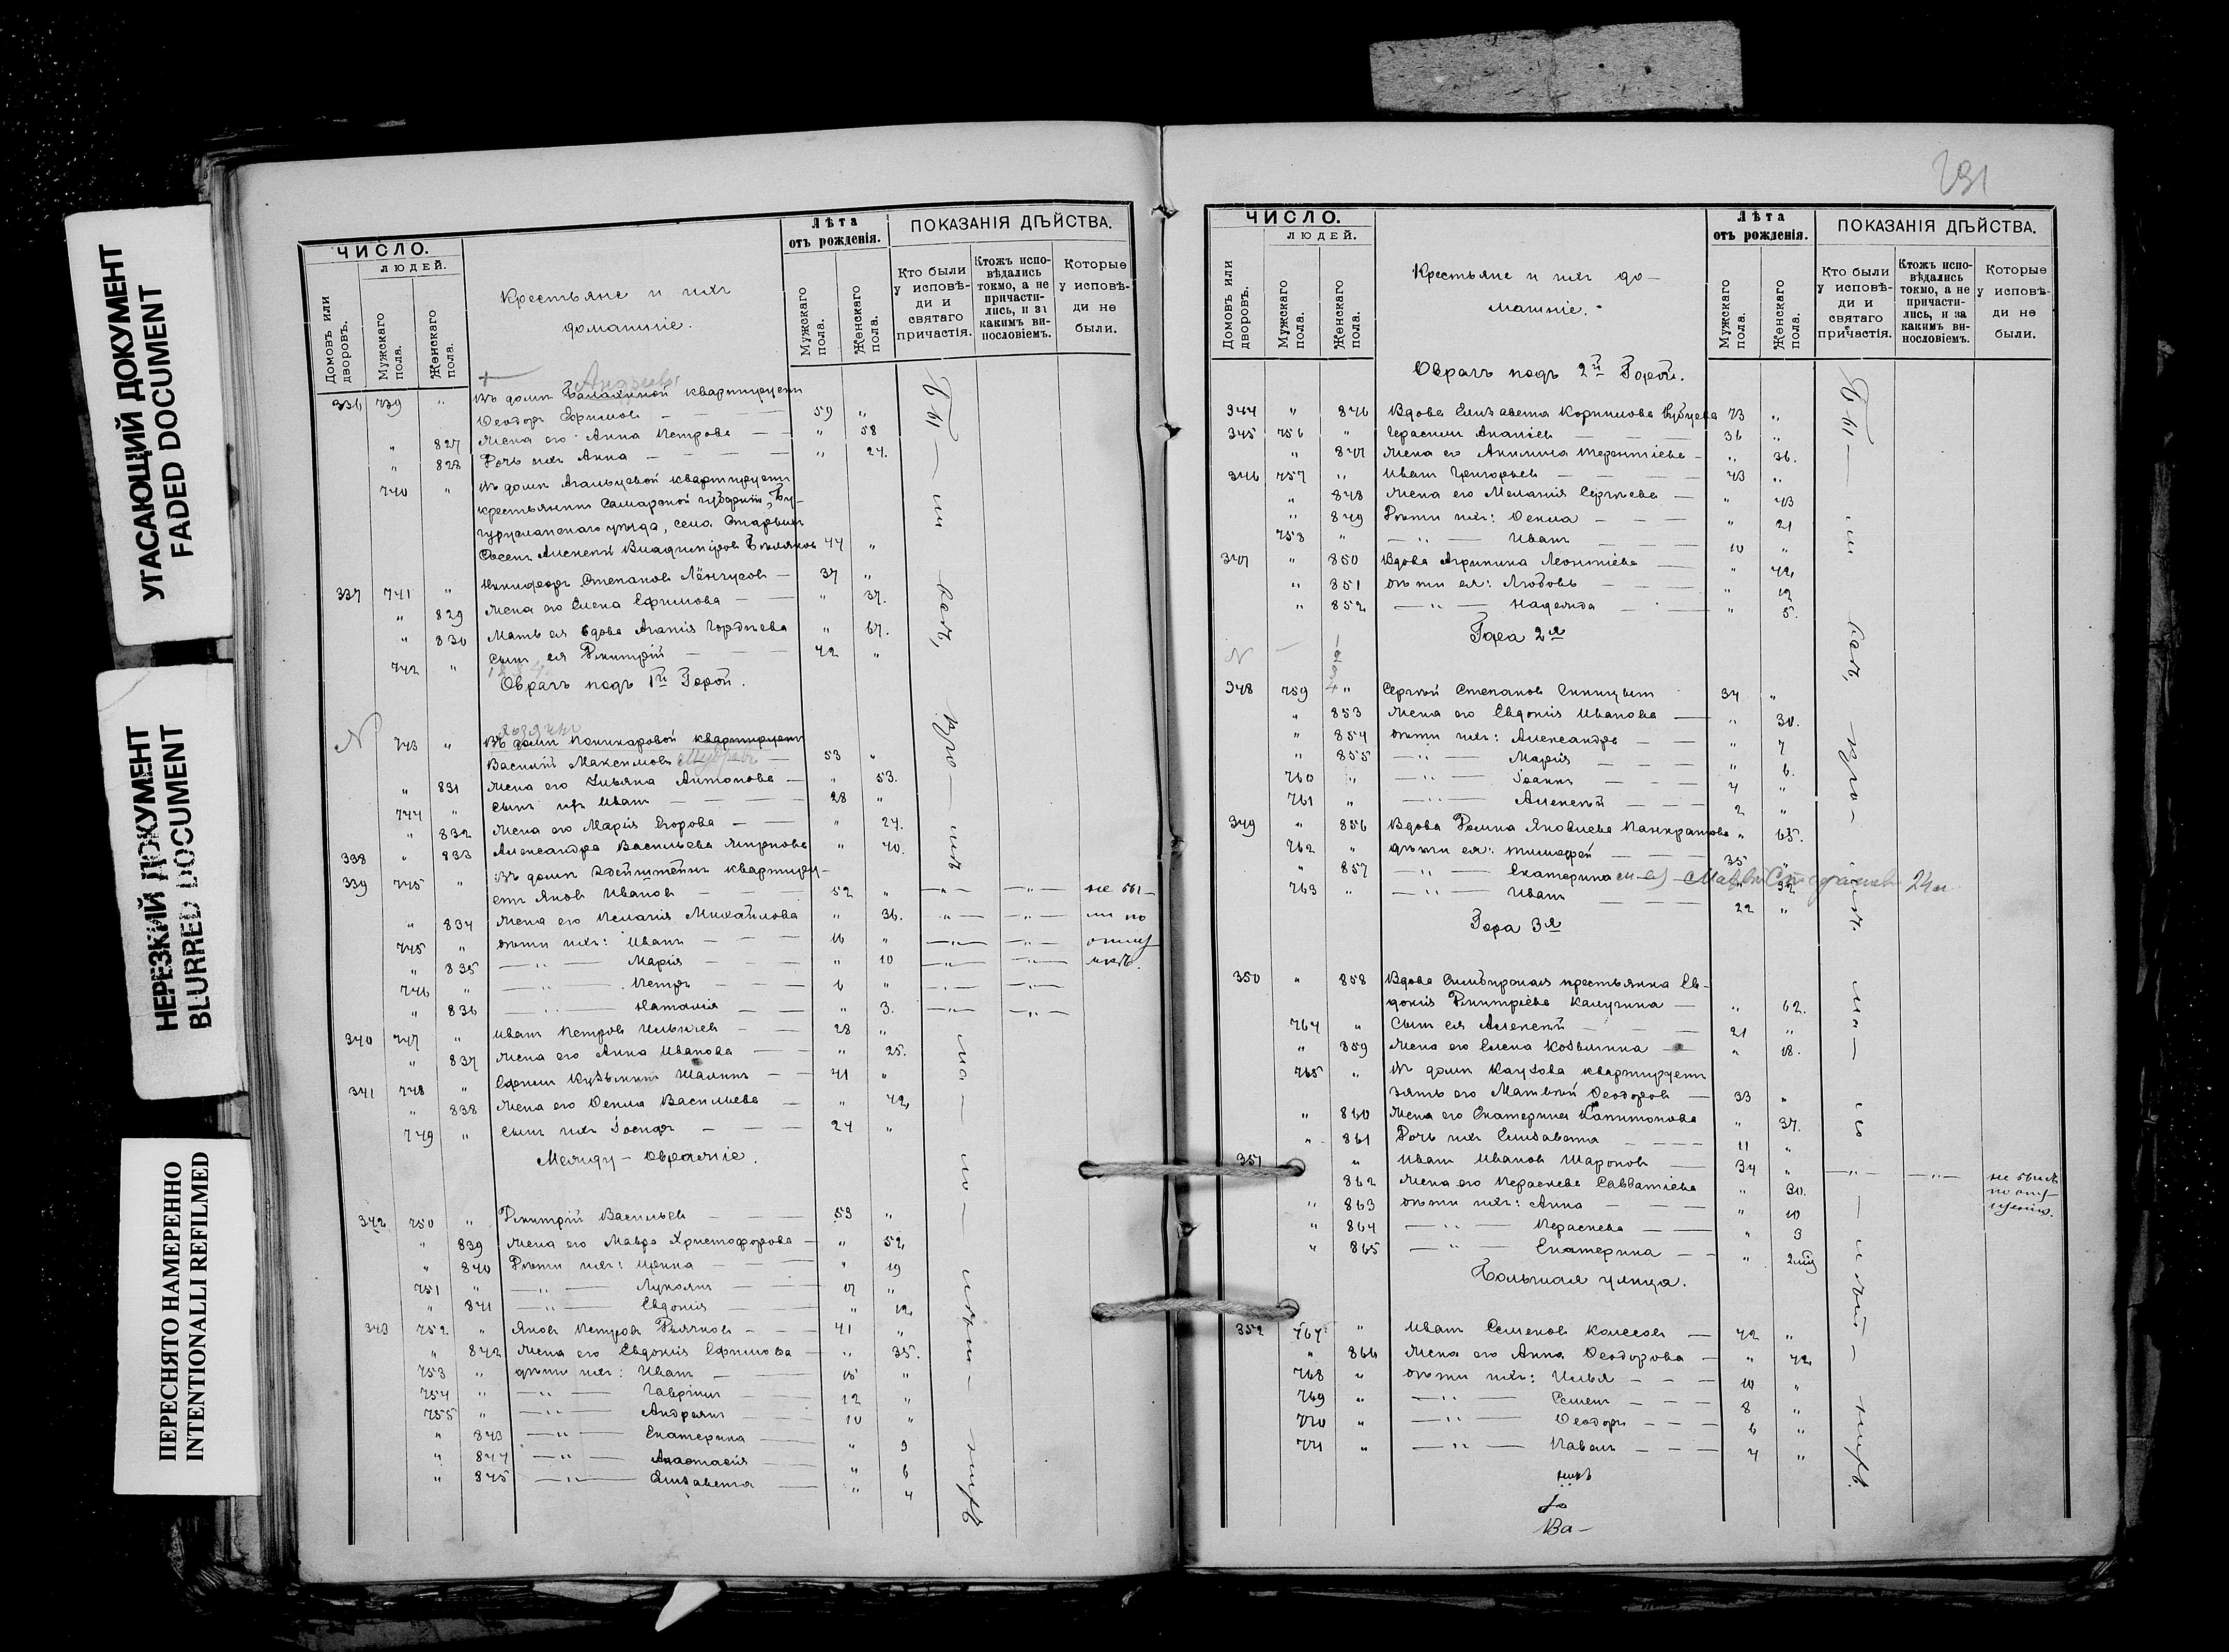 УГАСАЮЩИЙ ДОКУМЕНТ
FADED DOCUMENT
НЕРЕЗКИЙ ДОКУМЕНТ
BLURRED DOCUMENT
ПЕРЕСНЯТО НАМЕРЕННО
INTENTIONALLI REFILMED
ЧИСЛО.
ЛЮДЕЙ.
Домовъ или дворовъ.
Мужскаго пола.
Женскаго пола.
Крестьяне и ихъ
домашніе.
Лѣта
отъ рожденія.
Мужскаго пола.
Женскаго пола.
ПОКАЗАНІЯ ДѢЙСТВА.
Кто были
у исповѣ-
ди и
святаго
причастія.
Ктожъ испо-
вѣдались
токмо, а не
причасти-
лись, и за
какимъ ви-
нословіемъ.
Которые
у исповѣ-
ди не
были.
336 739 " Въ домѣ квартируетъ
Ѳеодоръ Ефимовъ — 59 "
" 827 Жена его Анна Петрова — " 58
" 828 Дочь ихъ Анна — " 24.
740 " Въ домѣ квартируетъ
крестьянинъ Самарской губерніи, Бу-
гурусланскаго уѣзда, села Старыхъ
Алексѣй Владиміровъ Бѣляковъ 44 "
337 741 " Никифоръ Степановъ — 37 "
" 829 Жена его Елена Ефимова — " 37.
" 830 Мать ея вдова Агапія Гордѣева " 67.
742 " Сынъ ея Дмитрій — 42 "
Оврагъ подъ 1й Горой.
743 " Въ домѣ квартируетъ
Василій Максимовъ — 53 "
" 831 Жена его Ульяна Антонова — " 53.
744 " Сынъ ихъ Иванъ — 28 "
" 832 Жена его Марія Егорова — " 24.
338 " 833 Александра Васильева Жирнова " 40.
339 745 " Въ домѣ Эдейнштейнъ квартиру-
етъ Яковъ Иванов — 52 " не бы-
" 834 Жена его Меланія Михайлова " 36. ли по
745 " Дѣти ихъ: Иванъ — 16 "
" 835 Марія — " 10
746 " Петръ — 6 "
" 836 Наталія — " 3.
340 747 " Иванъ Петровъ Ильичев — 28 "
" 837 Жена его Анна Иванова — " 25.
341 748 " Ефимъ Кузьминъ Шалинъ — 41 "
" 838 Жена его Ѳекла Васильева — " 42
749 " Сынъ ихъ Іосифъ — 24 "
Между-Овражіе.
342 750 " Дмитрій Васильев — 53 "
" 839 Жена его Мавра Христофорова — " 52
" 840 Дѣти ихъ: — " 19
751 " Лукьянъ — 17 "
" 841 Евдокія — " 12
343 752 " Яковъ Петровъ Дьячков — 41 "
" 842 Жена его Евдокія Ефимова — " 35.
753 " Дѣти ихъ: Иванъ — 15 "
754 " Гавріилъ — 12 "
755 " Андреянъ — 10 "
" 843 Екатерина — " 9
" 844 Анастасія — " 6
" 845 Елизавета — " 4
231
ЧИСЛО.
ЛЮДЕЙ.
Домовъ или дворовъ.
Мужскаго пола.
Женскаго пола.
Крестьяне и ихъ до-
машніе.
Лѣта
отъ рожденія.
Мужскаго пола.
Женскаго пола.
ПОКАЗАНІЯ ДѢЙСТВА.
Кто были
у исповѣ-
ди и
святаго
причастія.
Ктожъ испо-
вѣдались
токмо, а не
причасти-
лись, и за
какимъ ви-
нословіемъ.
Которые
у исповѣ-
ди не
были.
Оврагъ подъ 2й Горой.
344 " 846 Вдова Елизавета Корнилова 73 "
345 756 " Герасимъ Ананіев — 36 "
" 847 Жена его Акилина Терентіева — " 36.
346 757 " Иванъ Григорьев — 43 "
" 848 Жена его Меланія Сергѣева — " 43
" 849 Дѣти ихъ: Ѳекла — " 21
758 " Иванъ — 10 "
347 " 850 Вдова Агрипина Леонтіева — " 42
" 851 Дѣти ея: Любовь — " 12
" 852 Надежда — " 5.
Гора 2я
348 759 " Сергѣй Степановъ — 34 "
" 853 Жена его Евдокія Иванова — " 30.
" 854 Дѣти ихъ: Александра — " 7
" 855 Марія — " 6.
760 " Іоаннъ — 4 "
761 " Алексѣй — 2 "
349 " 856 Вдова Домна Яковлева Панкратова " 65.
762 " Дѣти ея: Тимофей — 35 "
" 857 Екатерина " 32
763 " Иванъ — 22 "
Гора 3я
350 " 858 Вдова Симбирская крестьянка Ев-
докія Дмитріева Калугина — " 62.
764 " Сынъ ея Алексѣй — 21 "
" 859 Жена его Елена Козьмина — " 18.
765 " Въ домѣ Каузова квартируетъ
зять его Матвѣй Ѳеодоров — 33 "
" 860 Жена его Екатерина Капитонова " 37.
" 861 Дочь ихъ Елизавета — 11 "
351 " Иванъ Иванов Шаронов — 34 " не были
862 Жена его Параскева Савватіева " 30. по отлу-
" 863 Дѣти ихъ: Анна — " 10
" 864 Параскева — " 3
" 865 Екатерина —
Большая улица.
352 767 " Иванъ Семенов Колесов — 42 "
" 866 Жена его Анна Ѳеодорова — " 42
768 " Дѣти ихъ: Илья — 10 "
769 " Семенъ — 8 "
770 " Ѳеодоръ — 6 "
771 " Павелъ — 4 "
Ва-